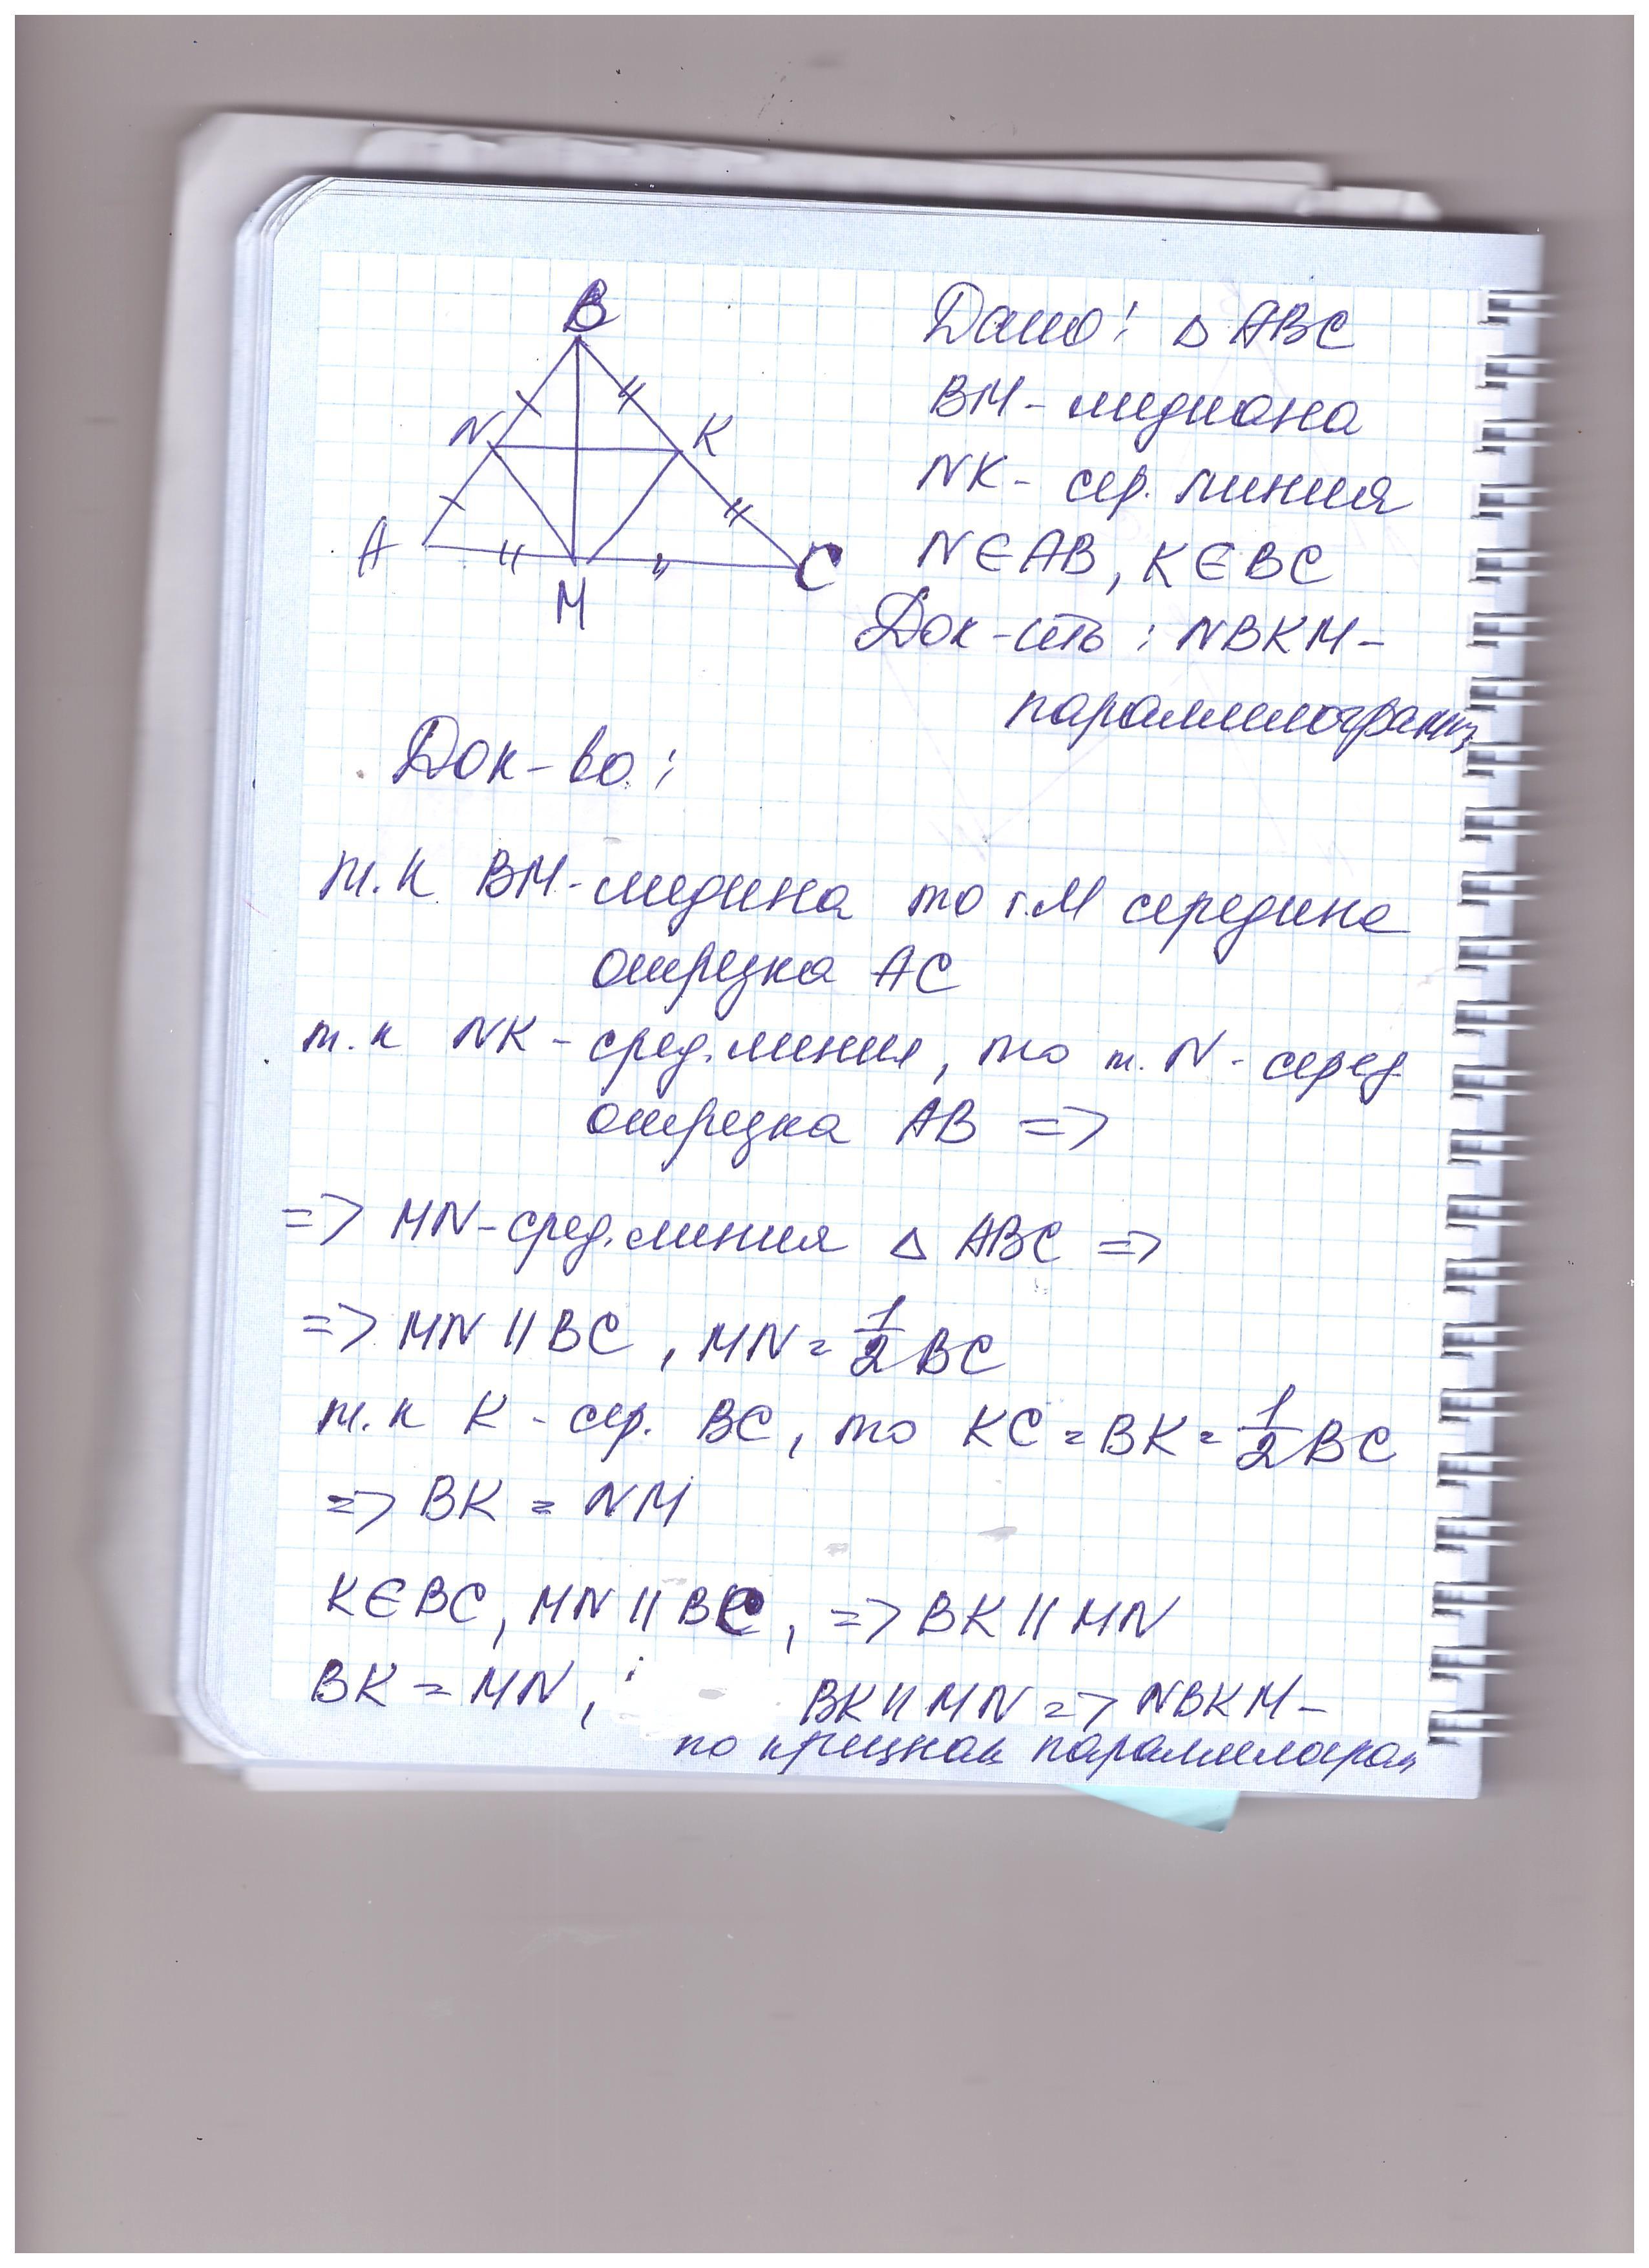 B
N
K
A
M
C
Дано: △ ABC
BM - медиана
NK - сер. линия
N ∈ AB, K ∈ BC
Док-ть: NBKM -
параллелограмм
Док-во:
т.к BM - медина то т.M середина
отрезка AC
т.к NK - сред. линия, то т. N - серед
отрезка AB =>
=> MN - сред. линия △ ABC =>
=> MN || BC, MN = 1/2 BC
т.к K - сер. BC, то KC = BK = 1/2 BC
=> BK = NM
K ∈ BC, MN || BC, => BK || MN
BK = MN, BK || MN => NBKM -
по признак параллелограм